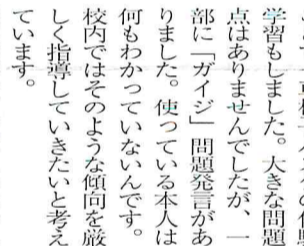 学習もしました。大きな問題
点はありませんでしたが、一
部に「ガイジ」問題発言があ
りました。使っている本人は
何もわかっていないんです。
校内ではそのような傾向を厳
しく指導していきたいと考え
ています。